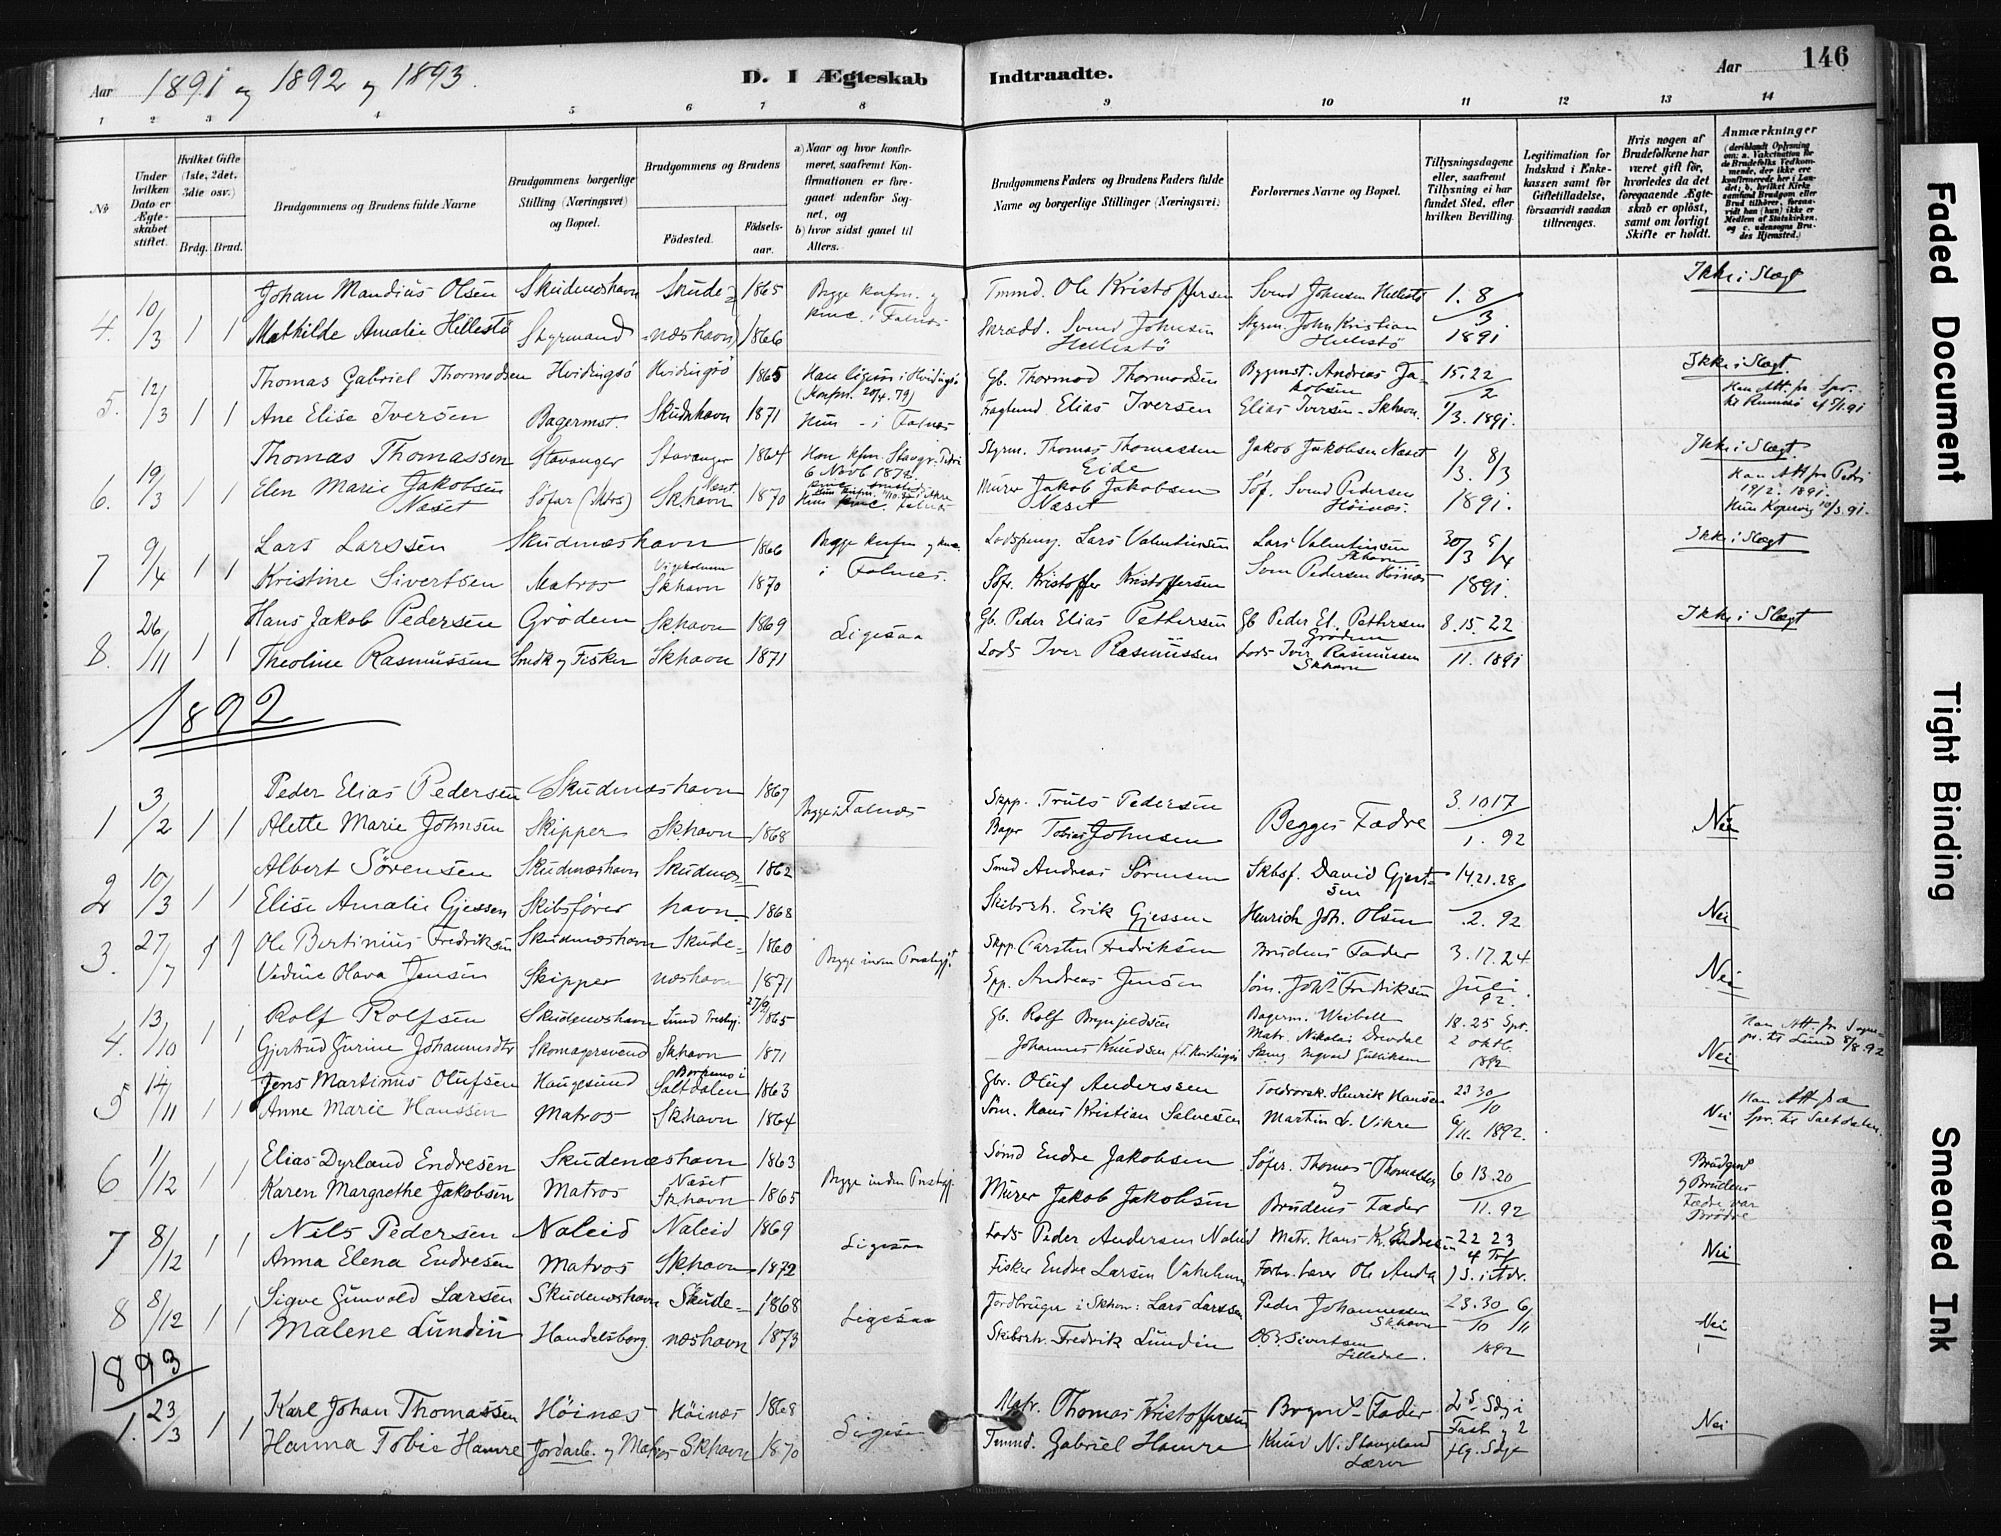 Aar 1891 og 1892 og 1893. D. I Ægteskab Indtraadte. Aar 146
1 2 3 4 5 6 7 8 9 10 11 12 13 14
No
Under hvilken Dato er Ægteskabet stiftet.
Hvilket Gifte (1ste, 2det, 3die osv.)
Brdg. Brud.
Brudgommens og Brudens fulde Navne
Brudgommens borgerlige Stilling (Næringsvei) og Bopæl.
Brudgommens og Brudens
Fødested. Fødselsaar.
a) Naar og hvor konfirmeret, saafremt Konfirmationen er foregaaet udenfor Sognet, og
b) hvor sidst gaaet til Alters.
Brudgommens Faders og Brudens Faders fulde Navne og borgerlige Stillinger (Næringsvei.
Forlovernes Navne og Bopæl.
Tillysningsdagene eller, saafremt Tillysning ei har fundet Sted, efter hvilken Bevilling.
Legitimation for Indskud i Enkekassen samt for Giftetilladelse, forsaavidt saadan tiltrænges.
Hvis nogen af Brudefolkene har været gift før, hvorledes da det foregaaende Ægteskab er opløst, samt om lovligt Skifte er holdt.
Anmærkninger
(deriblandt Oplysning om: a. Vakcination for de Brudefolks Vedkommende, der ikke ere konfirmerede her i Landet; b. hvilket Kirkesamfund Brudgom eller Brud tilhører, forsaavidt han (hun) ikke er Medlem af Statskirken, og c. udensogns Brudes Hjemsted.)
4. 10/3 1 1 Johan Mandius Olsen Skudeneshavn Skude= 1865 Begge konfirm. og Tmmd. Ole Kristoffersen Svend Johnsen Hellestø 1. 8/3 Ikke i Slægt
Mathilde Amalie Hellestø Styrmand næshavn 1866 i Falnæs Skrædd. Svend Johnsen Hellestø Styrm. John Kristian Hellestø 1891
5. 12/3 1 1 Thomas Gabriel Thormodsen Hvidingsö Hvidingsö 1865 Han ligesaa i Hvidingsö (Konfirm. 20/4. 79) Gb. Thormod Thormodsen Bygmst. Andreas Jakobsen 15. 22/2 Ikke i Slægt.
Ane Elise Iversen Bagermst. Skudeshavn 1871 Hun - i Falnæs Elias Iversen Elias Iversen - Skhavn. 1/3. 1891.
6. 19/3 1 1 Thomas Thomassen Stavanger Stavanger 1864 Han kfm. Stavgr. Petri Styrm. Thomas Thomassen Eide Jakob Jakobsen Næset 1/3. 8/3 Ikke i Slægt.
Elen Marie Jakobsen Næset Söfar (Mtros) Næset Skhavn 1870 Falnæs Murer Jakob Jakobsen Næset Söf. Svend Pedersen Höinæs. 1891. Han Att fra Petri 19/2. 1891. Hun Kopervig 10/3. 91.
7 9/4 1 1 Lars Larssen Skudeneshavn 1866 Begge konfirm. og i Falnæs. Lars Valentinsen Lars Valentinsen Skhavn 30/3 5/4 Ikke i Slægt
Kristine Sivertsen Matros Skhavn 1870 Söfr. Kristoffer Kristoffersen Sven Pedersen Höinæs 1891.
8. 26/11 1 1 Hans Jakob Pedersen Grödem Skhavn 1869 Ligesaa Gb. Peder Elias Pettersen Gb Peder El. Pettersen Grödem 8. 15. 22 Ikke i Slægt
Theoline Rasmussen Smedk og Fisker Skhavn 1871 Lods Iver Rasmussen Lods Iver Rasmussen Skhavn 11. 1891
1892
1 3/2 1 1 Peder Elias Pedersen Skudeneshavn 1867 Begge i Falnæs Skpp. Truls Pedersen Begges Fædre 3. 10 17/ Nei
Alette Marie Johnsen Skipper Skhavn 1868 Bager Tobias Johnsen 1. 92
2 10/3 1 1 Albert Sörensen Skudeneshavn Skudenæs= 1862 Smed Andreas Sörensen Skbsf. David Gjertsen 14. 21. 28/
Elise Amalie Gjessen Skibsförer havn. 1868 Erik Gjessen Henrich Joh. Olsen .2. 92 Nei
3. 27/7 1 1 Ole Bertinius Fredriksen Skudeneshavn Skude= 1860 Begge inden Præstegj. Skpp. Carsten Fredriksen Brudens Fader 3. 17. 24
Vedine Olava Jensen Skipper neshavn 1871 Spp. Andreas Jensen Söm. Joh. Fredriksen Juli. 92. Nei
4. 13/10 1 1 Rolf Rolfsen Skudeneshavn Lund Præstegj. 27/9 1865 Gb. Rolf Brynjeldsen Bagerm. Weibell 18. 25 Spt.
Gjertrud Jurine Johannesdtr Skomagersvend Skhavn 1871 Johannes Knudsen Matr. Nikolai Drevdal 2 Oktb. 1892 Nei
5 14/11 1 1 Jens Martinus Olufsen Haugesund Saltdalen 1863 Gbr. Oluf Andersen Henrik Hansen 23 30/10
Anne Marie Hanssen Matros Skhavn 1864 Söm. Hans Kristian Salvesen Martin L. Vikre 6/11. 1892. Nei
6 1/12 1 1 Elias Dyrland Endresen Skudeneshavn 1863 Begge inden Præstegj. Endre Jakobsen Söfr. Thomas Thomassen og 6 13. 20 Brudgms og Brudens Fædre var Brödre
Karen Margrethe Jakobsen Matros Næset Skhavn 1865 Murer Jakob Jakobsen Brudens Fader 11. 92
7 8/12 1 1 Nils Pedersen Naleid Naleid 1869 Ligesaa Lods Peder Andersen Naleid Matr. Hans K. Endresen 22 23
Anna Elena Endresen Matros Skhavn 1872 Fisker Endre Larsen Ole Anda Nei
8 8/12 1 1 Sigve Gunvald Larsen Skudeneshavn Skude= 1868 Ligesaa Jordbruger i Skhavn: Lars Larssen Peder Johannessen Skhavn 23. 30/10 6/11
Malene Lundin Handelsborg. næshavn 1873 Fredrik Lundin O. B. Sivertsen Lilledal. 1892 Nei
1893
1. 23/3 1 1 Karl Johan Thomassen Höinæs Höinæs 1868 Ligesaa Thomas Kristoffersen Brgms Fader
Hanna Tobie Hamre Jordarb. og Matros Skhavn 1870 Tmmd. Gabriel Hamre Knud N. Stangeland Lærer Nei
Faded Document
Tight Binding
Smeared Ink